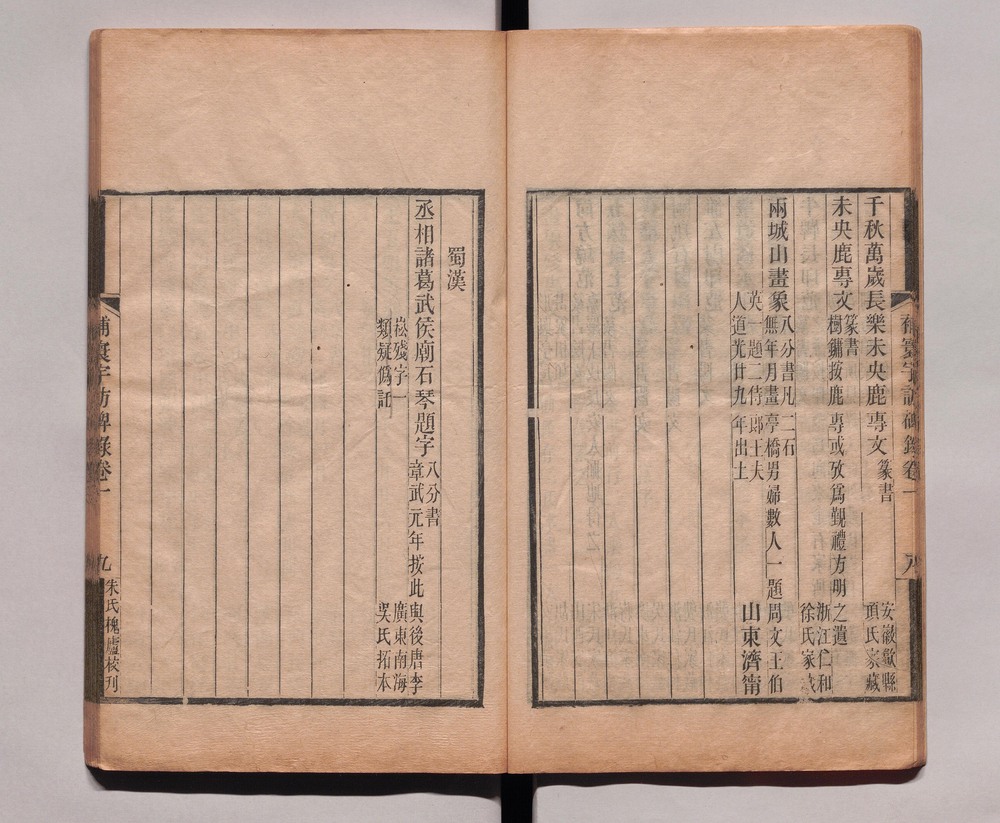 補寰宇訪碑錄卷一
八
千秋萬歲長樂未央鹿專文
篆書
安徽歙縣
項氏家藏
未央鹿專文
篆書
樹鏞按鹿專或攷爲覲禮方明之遺
浙江仁和
徐氏家藏
兩城山畫象
八分書凡二石
無年月畫亭橋男婦數人一題周文王伯
英一題二侍郎王夫
人道光廿九年出土
山東濟甯
蜀漢
丞相諸葛武侯廟石琴題字
八分書
章武元年按此與後唐李
崧殘字一
類疑僞託
廣東南海
吳氏拓本
補寰宇訪碑錄卷一
九
朱氏槐廬校刊